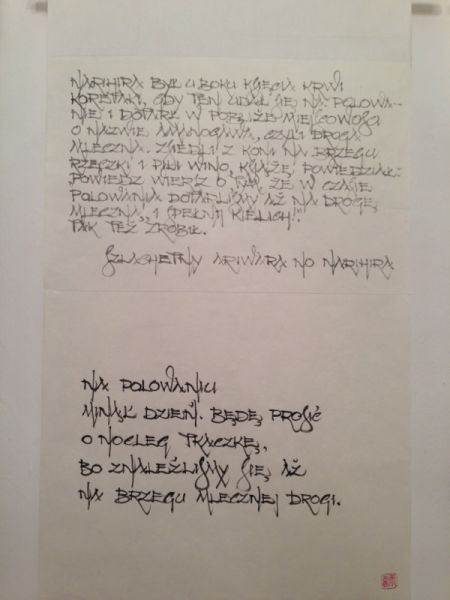 NARIHIRA BYŁ U BOKU KSIĘCIA KRWI
KORETAKI, GDY TEN UDAŁ SIĘ NA POLOWA-
NIE I DOTARŁ W POBLIŻE MIEJSCOWOŚCI
O NAZWIE AMANOGAWA, CZYLI DROGA
MLECZNA. ZSIEDLI Z KONI NA BRZEGU
RZECZKI I PILI WINO, KSIĄŻĘ POWIEDZIAŁ:
"POWIEDZ WIERSZ O TYM, ŻE W CZASIE
POLOWANIA DOTARLIŚMY AŻ NA DROGĘ
MLECZNĄ, I SPEŁNIJ KIELICH!".
TAK TEŻ ZROBIŁ.
SZLACHETNY ARIWARA NO NARIHIRA
NA POLOWANIU
MINĄŁ DZIEŃ. BĘDĘ PROSIĆ
O NOCLEG TKACZKĘ,
BO ZNALEŹLIŚMY SIĘ AŻ
NA BRZEGU MLECZNEJ DROGI.